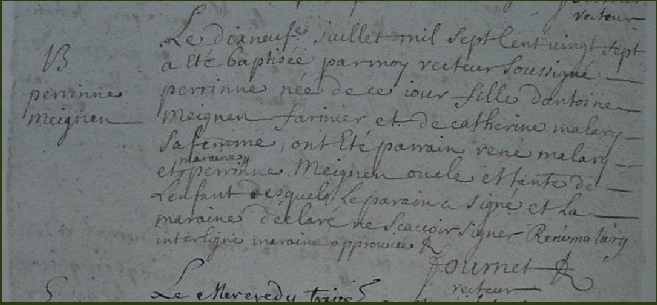 recteur
B
perrinne
Meignen
Le dixneufe juillet mil sept Cent vingt sept
a Eté baptisée par moy recteur Soussigné
perrinne née de ce iour fille dantoine
Meignen farinier et de catherine malary
Sa femme, ont Eté parrain rené malary
maraine
et perrinne Meignen oncle et tante de
Lenfant desquels Le parain a signé et La
maraine declaré ne Scavoir signer René malary
interligne maraine approuvé
Journet
recteur
Le Mercredy